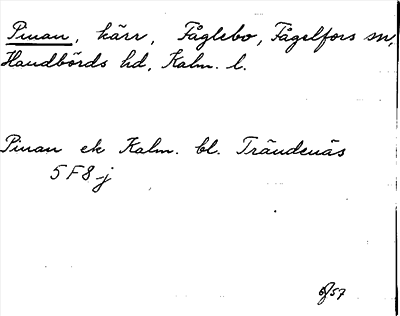 Pinan, kärr, Fåglebo, Fågelfors sn,
Handbörds hd, Kalm. l.
Pinan ek Kalm. bl. Trändenäs
5 F 8 j
57